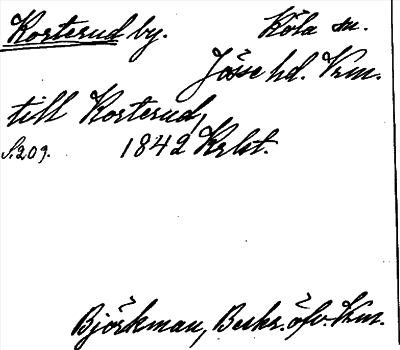 Korterud by. Köla sn.
Jösse hd. Vrm.
till Korterud,
S. 209. 1842 Krbt.
Björkman, Beskr. öfv. Vrm.